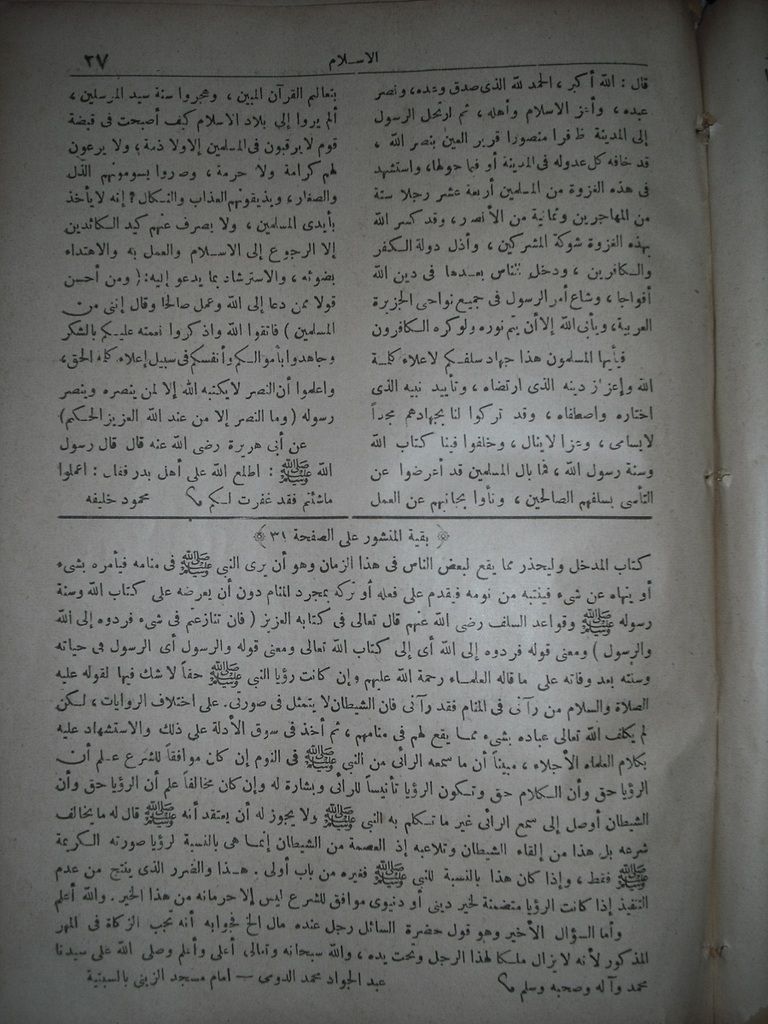 الاسلام
٢٧
قال : الله أكبر ، الحمد لله الذى صدق وعده ، ونصر
عبده ، وأعز الاسلام وأهله ، ثم ارتحل الرسول
إلى المدينة ظافرا منصورا قرير العين بنصر الله ،
قد خافه كل عدو له فى المدينة أو فيما حولها ، واستشهد
فى هذه الغزوة من المسلمين أربعة عشر رجلا ستة
من المهاجرين وثمانية من الأنصر ، وقد كسر الله
بهذه الغزوة شوكة المشركين ، وأذل دولة الكفر
والكافرين ، ودخل الناس بعدها فى دين الله
أفواجا ، وشاع أمر الرسول فى جميع نواحى الجزيرة
العربية ، ويأبى الله إلا أن يتم نوره ولو كره الكافرون
فيأيها المسلمون هذا جهاد سلفكم لاعلاء كلمة
الله وإعزاز دينه الذى ارتضاه ، وتأييد نبيه الذى
اختاره واصطفاه ، وقد تركوا لنا بجهادهم مجداً
لايسامى ، وعزا لاينال ، وخلفوا فينا كتاب الله
وسنة رسول الله ، فما بال المسلمين قد أعرضوا عن
التأسى بسلفهم الصالحين ، ونأوا بجانبهم عن العمل
بتعاليم القرآن المبين ، وهجروا سنة سيد المرسلين ،
ألم يروا إلى بلاد الاسلام كيف أصبحت فى قبضة
قوم لايرقبون فى المسلمين إلا ولا ذمة ؛ ولا يرعون
لهم كرامة ولا حرمة ، وصروا يسومونهم الذل
والصغار ، ويذيقونهم العذاب والنكال ؟ إنه لا يأخذ
بأيدى المسلمين ، ولا يصرف عنهم كيد الكائدين
إلا الرجوع إلى الاسلام والعمل به والاهتداء
بضوئه ، والاسترشاد بما يدعو إليه : ( ومن أحسن
قولا ممن دعا إلى الله وعمل صالحا وقال إننى من
المسلمين ) فاتقوا الله واذكروا نعمته عليكم بالشكر
وجاهدوا بأموالكم وأنفسكم فى سبيل إعلاء كلمة الحق ،
واعلموا أن النصر لايكتبه الله إلا لمن ينصره وينصر
رسوله ( وما النصر إلا من عند الله العزيز الحكيم )
عن أبى هريرة رضى الله عنه قال قال رسول
الله ﷺ : اطلع الله على أهل بدر فقال : اعملوا
ماشئتم فقد غفرت لكم محمود خليفه
بقية المنشور على الصفحة ٣١
كتاب المدخل وليحذر مما يقع لبعض الناس فى هذا الزمان وهو أن يرى النبى ﷺ فى منامه فيأمره بشىء
أو ينهاه عن شىء فينتبه من نومه فيقدم على فعله أو تركه بمجرد المنام دون أن يعرضه على كتاب الله وسنة
رسوله ﷺ وقواعد السلف رضى الله عنهم قال تعالى فى كتابه العزيز ( فان تنازعتم فى شىء فردوه إلى الله
والرسول ) ومعنى قوله فردوه إلى الله أى إلى كتاب الله تعالى ومعنى قوله والرسول أى الرسول فى حياته
وسنته بعد وفاته على ما قاله العلماء رحمة الله عليهم وإن كانت رؤيا النبى ﷺ حقاً لا شك فيها لقوله عليه
الصلاة والسلام من رآنى فى المنام فقد رآنى فان الشيطان لا يتمثل فى صورتى . على اختلاف الروايات ، لكن
لم يكلف الله تعالى عباده بشىء مما يقع لهم فى منامهم ، ثم أخذ فى سوق الأدلة على ذلك والاستشهاد عليه
بكلام العلماء الأجلاء ، مبيناً أن ما سمعه الرائى من النبى ﷺ فى النوم إن كان موافقاً للشرع علم أن
الرؤيا حق وأن الكلام حق وتكون الرؤيا تأنيساً للرائى وبشارة له وإن كان مخالفاً علم أن الرؤيا حق وأن
الشيطان أوصل إلى سمع الرائى غير ما تكلم به النبى ﷺ ولا يجوز له أن يعتقد أنه ﷺ قال له ما يخالف
شرعه بل هذا من إلقاء الشيطان وتلاعبه إذ العصمة من الشيطان إنما هى بالنسبة لرؤيا صورته الكريمة
ﷺ فقط ، وإذا كان هذا بالنسبة للنبى ﷺ فغيره من باب أولى . هذا والضرر الذى ينتج من عدم
التنفيذ إذا كانت الرؤيا متضمنة لخير دينى أو دنيوى موافق للشرع ليس إلا حرمانه من هذا الخير . والله أعلم
وأما السؤال الأخير وهو قول حضرة السائل رجل عنده مال الخ فجوابه أنه تجب الزكاة فى المهر
المذكور لأنه لا يزال ملكا لهذا الرجل وتحت يده ، والله سبحانه وتعالى أعلى وأعلم وصلى الله على سيدنا
محمد وآله وصحبه وسلم عبد الجواد محمد الدومى — امام مسجد الزينى بالسبتية